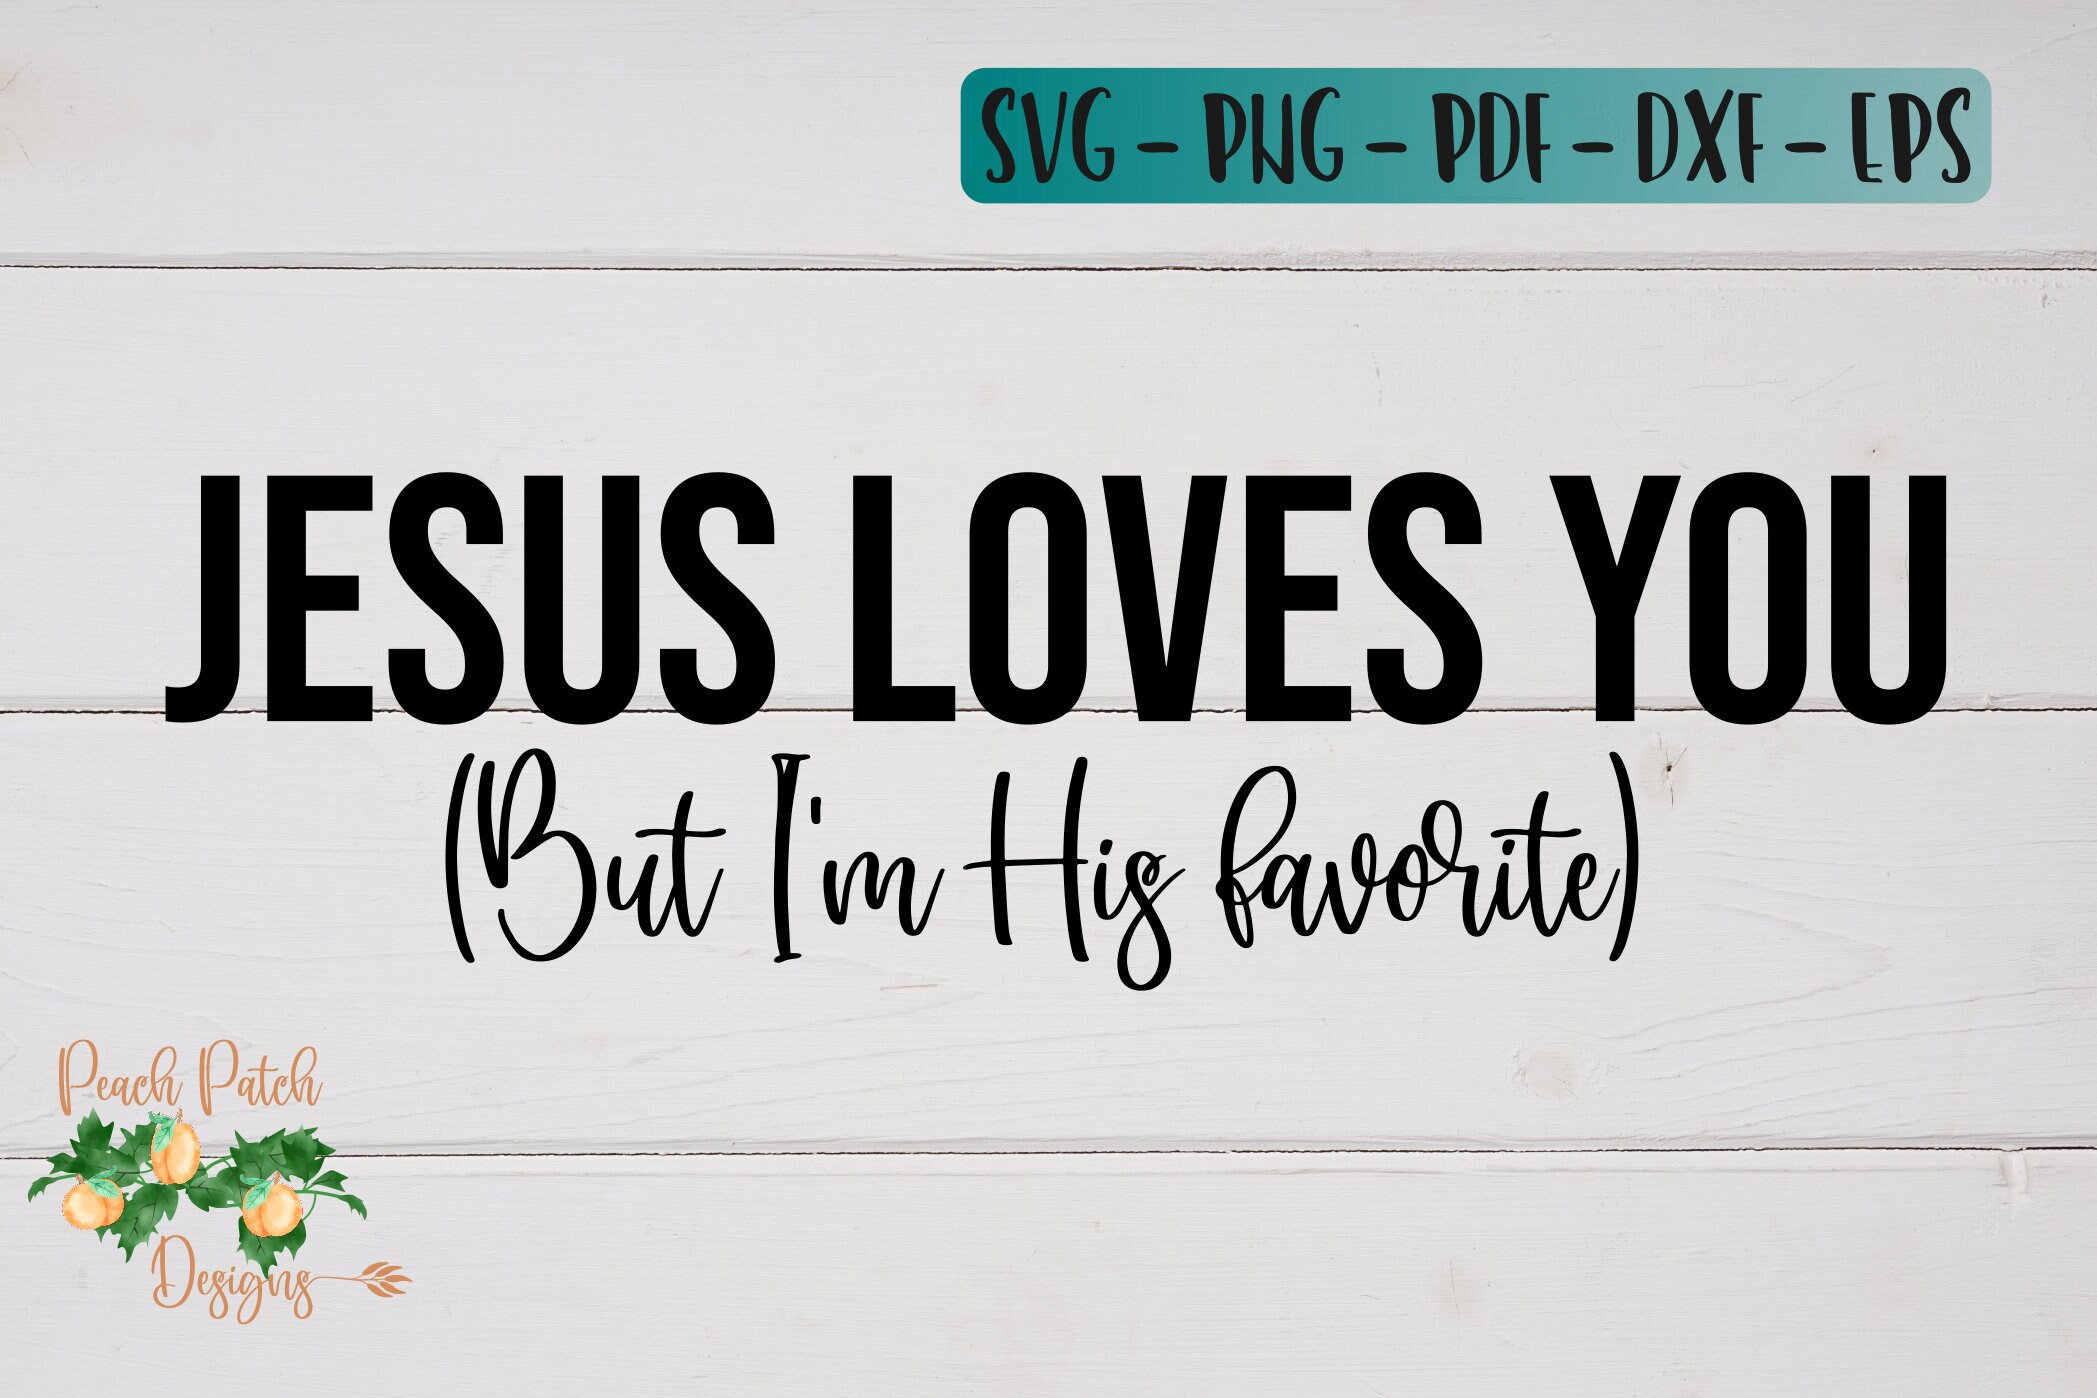 SVG - PNG - PDF - DXF - EPS
JESUS LOVES YOU
(But I'm His favorite)
Peach Patch
Designs